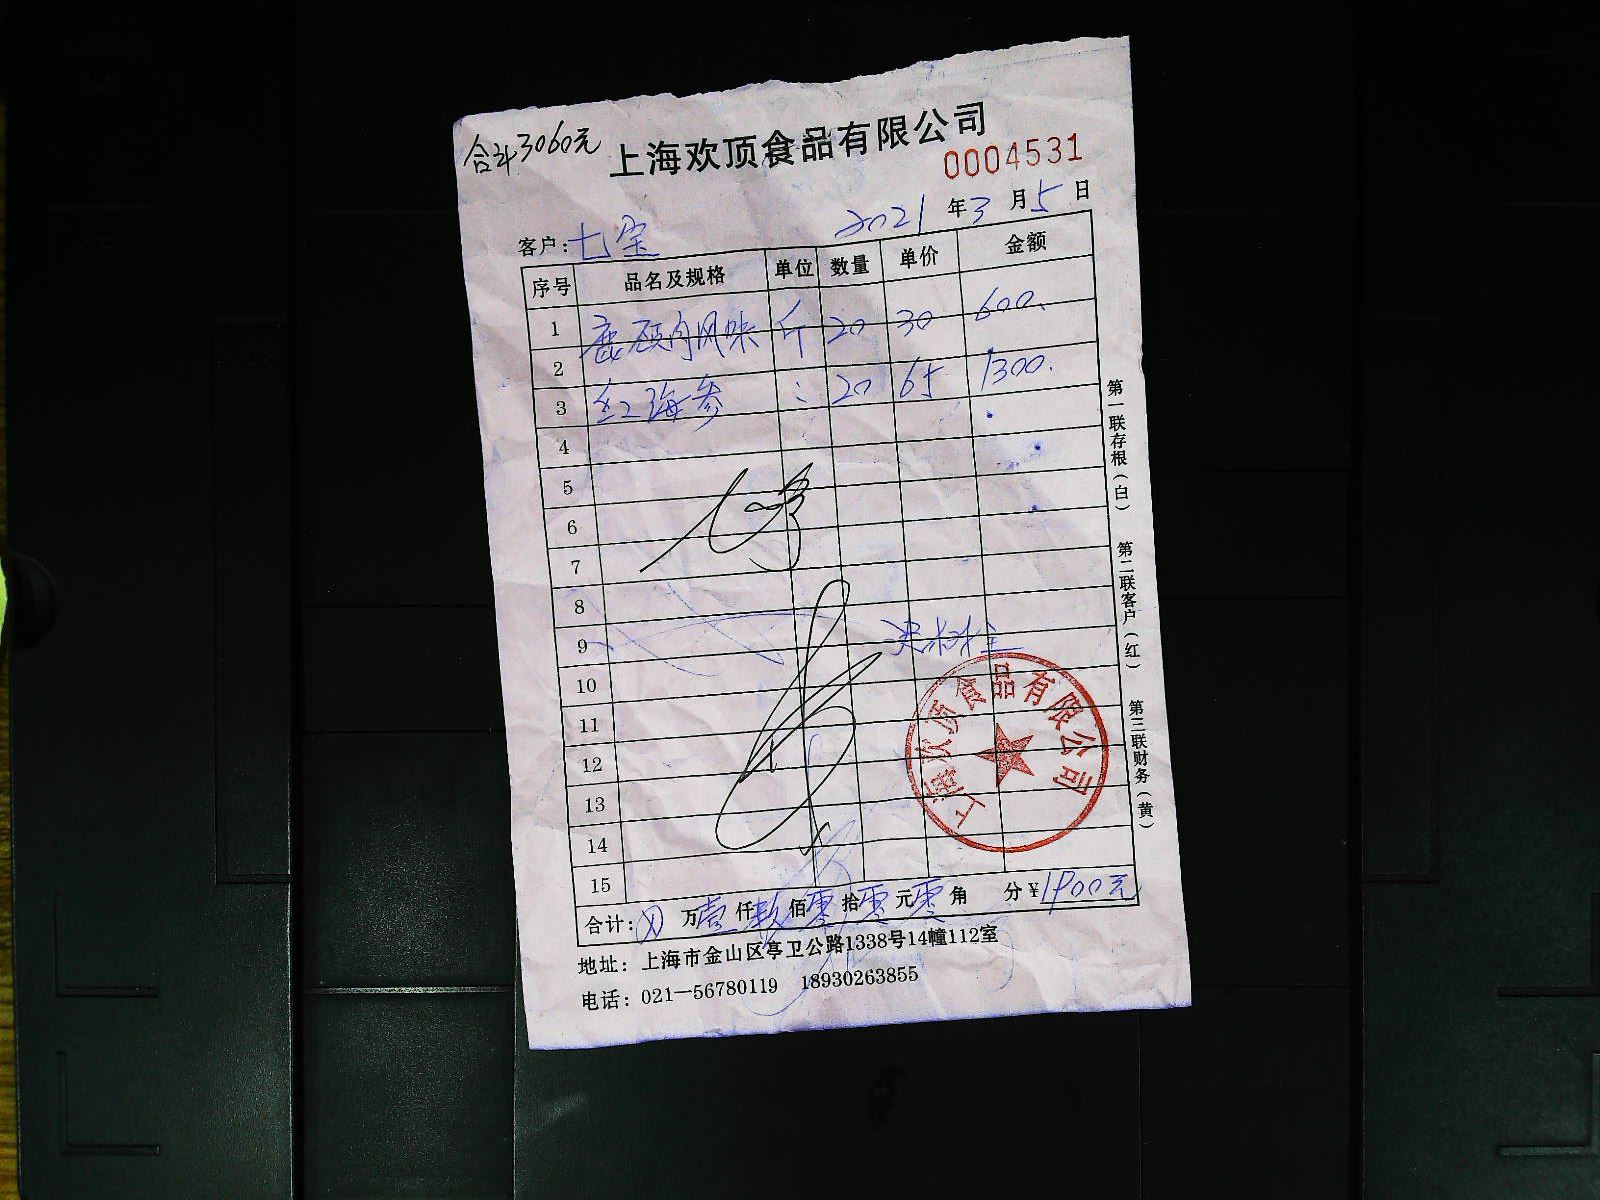 合计3060元
上海欢顶食品有限公司
0004531
2021年3月5日
客户:七宝
序号 品名及规格 单位 数量 单价 金额
1 风味 斤 20 30 600.
2
3 红海参 : 20 65 1300.
4
5
6
7
8
9
10
11
12
13
14
15
上海欢顶食品有限公司
合计: 万壹仟玖佰零拾零元零角 分¥1900元
地址: 上海市金山区亭卫公路1338号14幢112室
电话: 021—56780119 18930263855
第一联存根(白) 第二联客户(红) 第三联财务(黄)